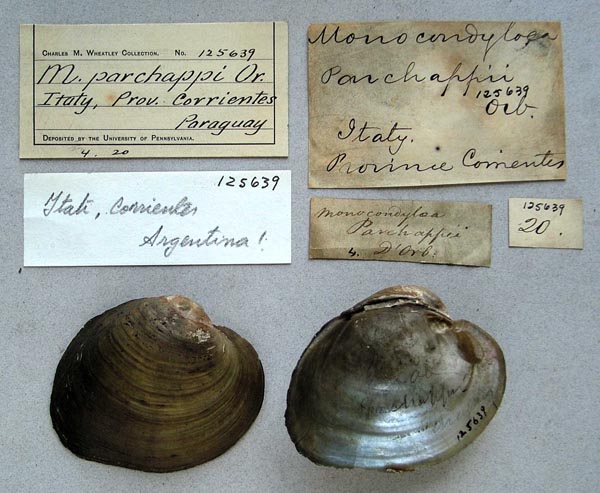 CHARLES M. WHEATLEY COLLECTION. No. 125639
M. parchappi Or.
Itaty, Prov. Corrientes
Paraguay
DEPOSITED BY THE UNIVERSITY OF PENNSYLVANIA.
4. 20
Monocondyloea
Parchappii
125639
Orb.
Itaty.
Province Corrientes
125639
Itati, Corrientes
Argentina!
Monocondyloea
Parchappii
4. D'Orb.
125639
20.
parchappii
125639